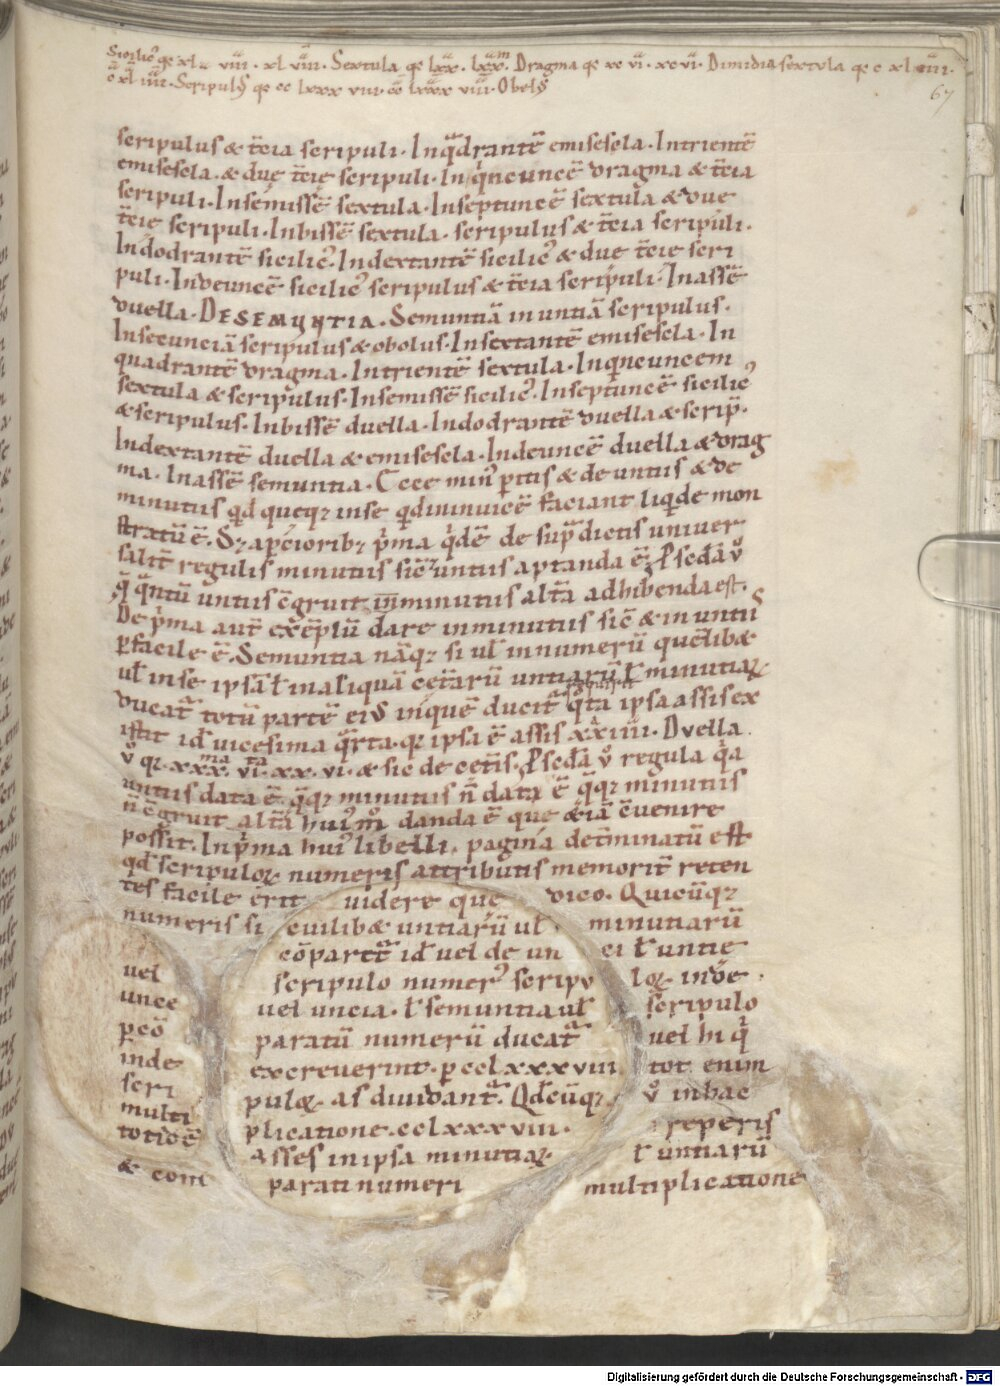 Sicilic᷒ qe xl · viii · xl viii · Sextula qe lxx · lxx · Dragma qe xc vi · xc vi · Dimidia sextula qe c xl iiii ·
c xl iiii · Scripul᷒ qe cc lxxx viii · cc lxxx viii · Obol᷒
67
scripulus & t̄cia scripuli · In q̄drantē emisescla · In trientē
emisescla · & due t̄cie scripuli · In q̇ncuncē dragma & t̄cia
scripuli · In semissē sextula · In septuncē sextula & due
t̄cie scripuli · In bissē sextula · scripulus & t̄cia scripuli ·
In dodrantē sicilic᷒ · In dextantē sicilic᷒ & due t̄cie scri
puli · In deuncē sicilic᷒ scripulus & t̄cia scripuli · In assē
duella · DE SEMUNTIA · Semuntiā in untiā scripulus ·
In sescunciā scripulus & obolus · In sextantē emisescla · In
quadrantē dragma · In trientē sextula · In qncuncem
sextula & scripulus · In semissē sicilic᷒ · In septuncē sicilic᷒
& scripulus · In bissē duella · In dodrantē duella & scrip̄ ·
In dextantē duella & emisescla · In deuncē duella & drag
ma · In assē semuntia · & de untiis & de
minutiis qid queq; in se qd in inuicē faciant liqide mon
stratū ē · S; apcioriƀ; p̄ma q̇dē de sup̄dictis uniuer
salit̄ regulis minutiis sic᷒ untiis aptanda ē · Secda v̊
q̇ q̄ntū untiis c̄gruit in minutiis alt̄a adhibenda est ·
De p̄ma aut̄ exēplū dare in minutiis sic̄ & in untii᷒
p̱facile ē · Semuntia nāq; si uł in numerū quēlibæ
uł in se ipsā ł in aliquā cet̄arū untiarū ł minutiaꝝ
ducat̄ totū partē ei᷒ in quē ducit̄ q̄ta ipsa assis ex
istit id vicesima q̄rta · q; ipsa ē assis xxiiii · Duella
v̊ q; xxx vi · xx · vi · & sic de cet̄is · Secda v̊ regula q̄a
untiis data ē q̄q; minutiis n̄ data ē q̄q; minutiis
n̄ c̄gruit alt̄a hui᷒m̊ danda ē que &iā c̄uenire
possit · In p̄ma hui᷒ libelli · pagina det̄minatū est
qd scripuloꝝ numeris attributis memorit̄ reten
tes facile erit uidere que dico · Quicūq;
numeris si cuilibæ untiarū uł minutiarū
cōpart̄ id uel de un ci ł untie
uel scripulo numer᷒ scripu loꝝ inde ·
unce uel uncia · ł semuntia uł scripulo
p̱cō paratū numerū ducat̄ uel hi q̇
inde excreuerint · p̱ cclxxxviii tot enim
scri pulꝝ · as diuidant̄ · Qdcūq; v̊ in hac
multi plicatione · cclxxxviii · reperis
totidē asses in ipsa minutiaꝝ ł untiarū
& com parati numeri multiplicatione
Digitalisierung gefördert durch die Deutsche Forschungsgemeinschaft - DFG